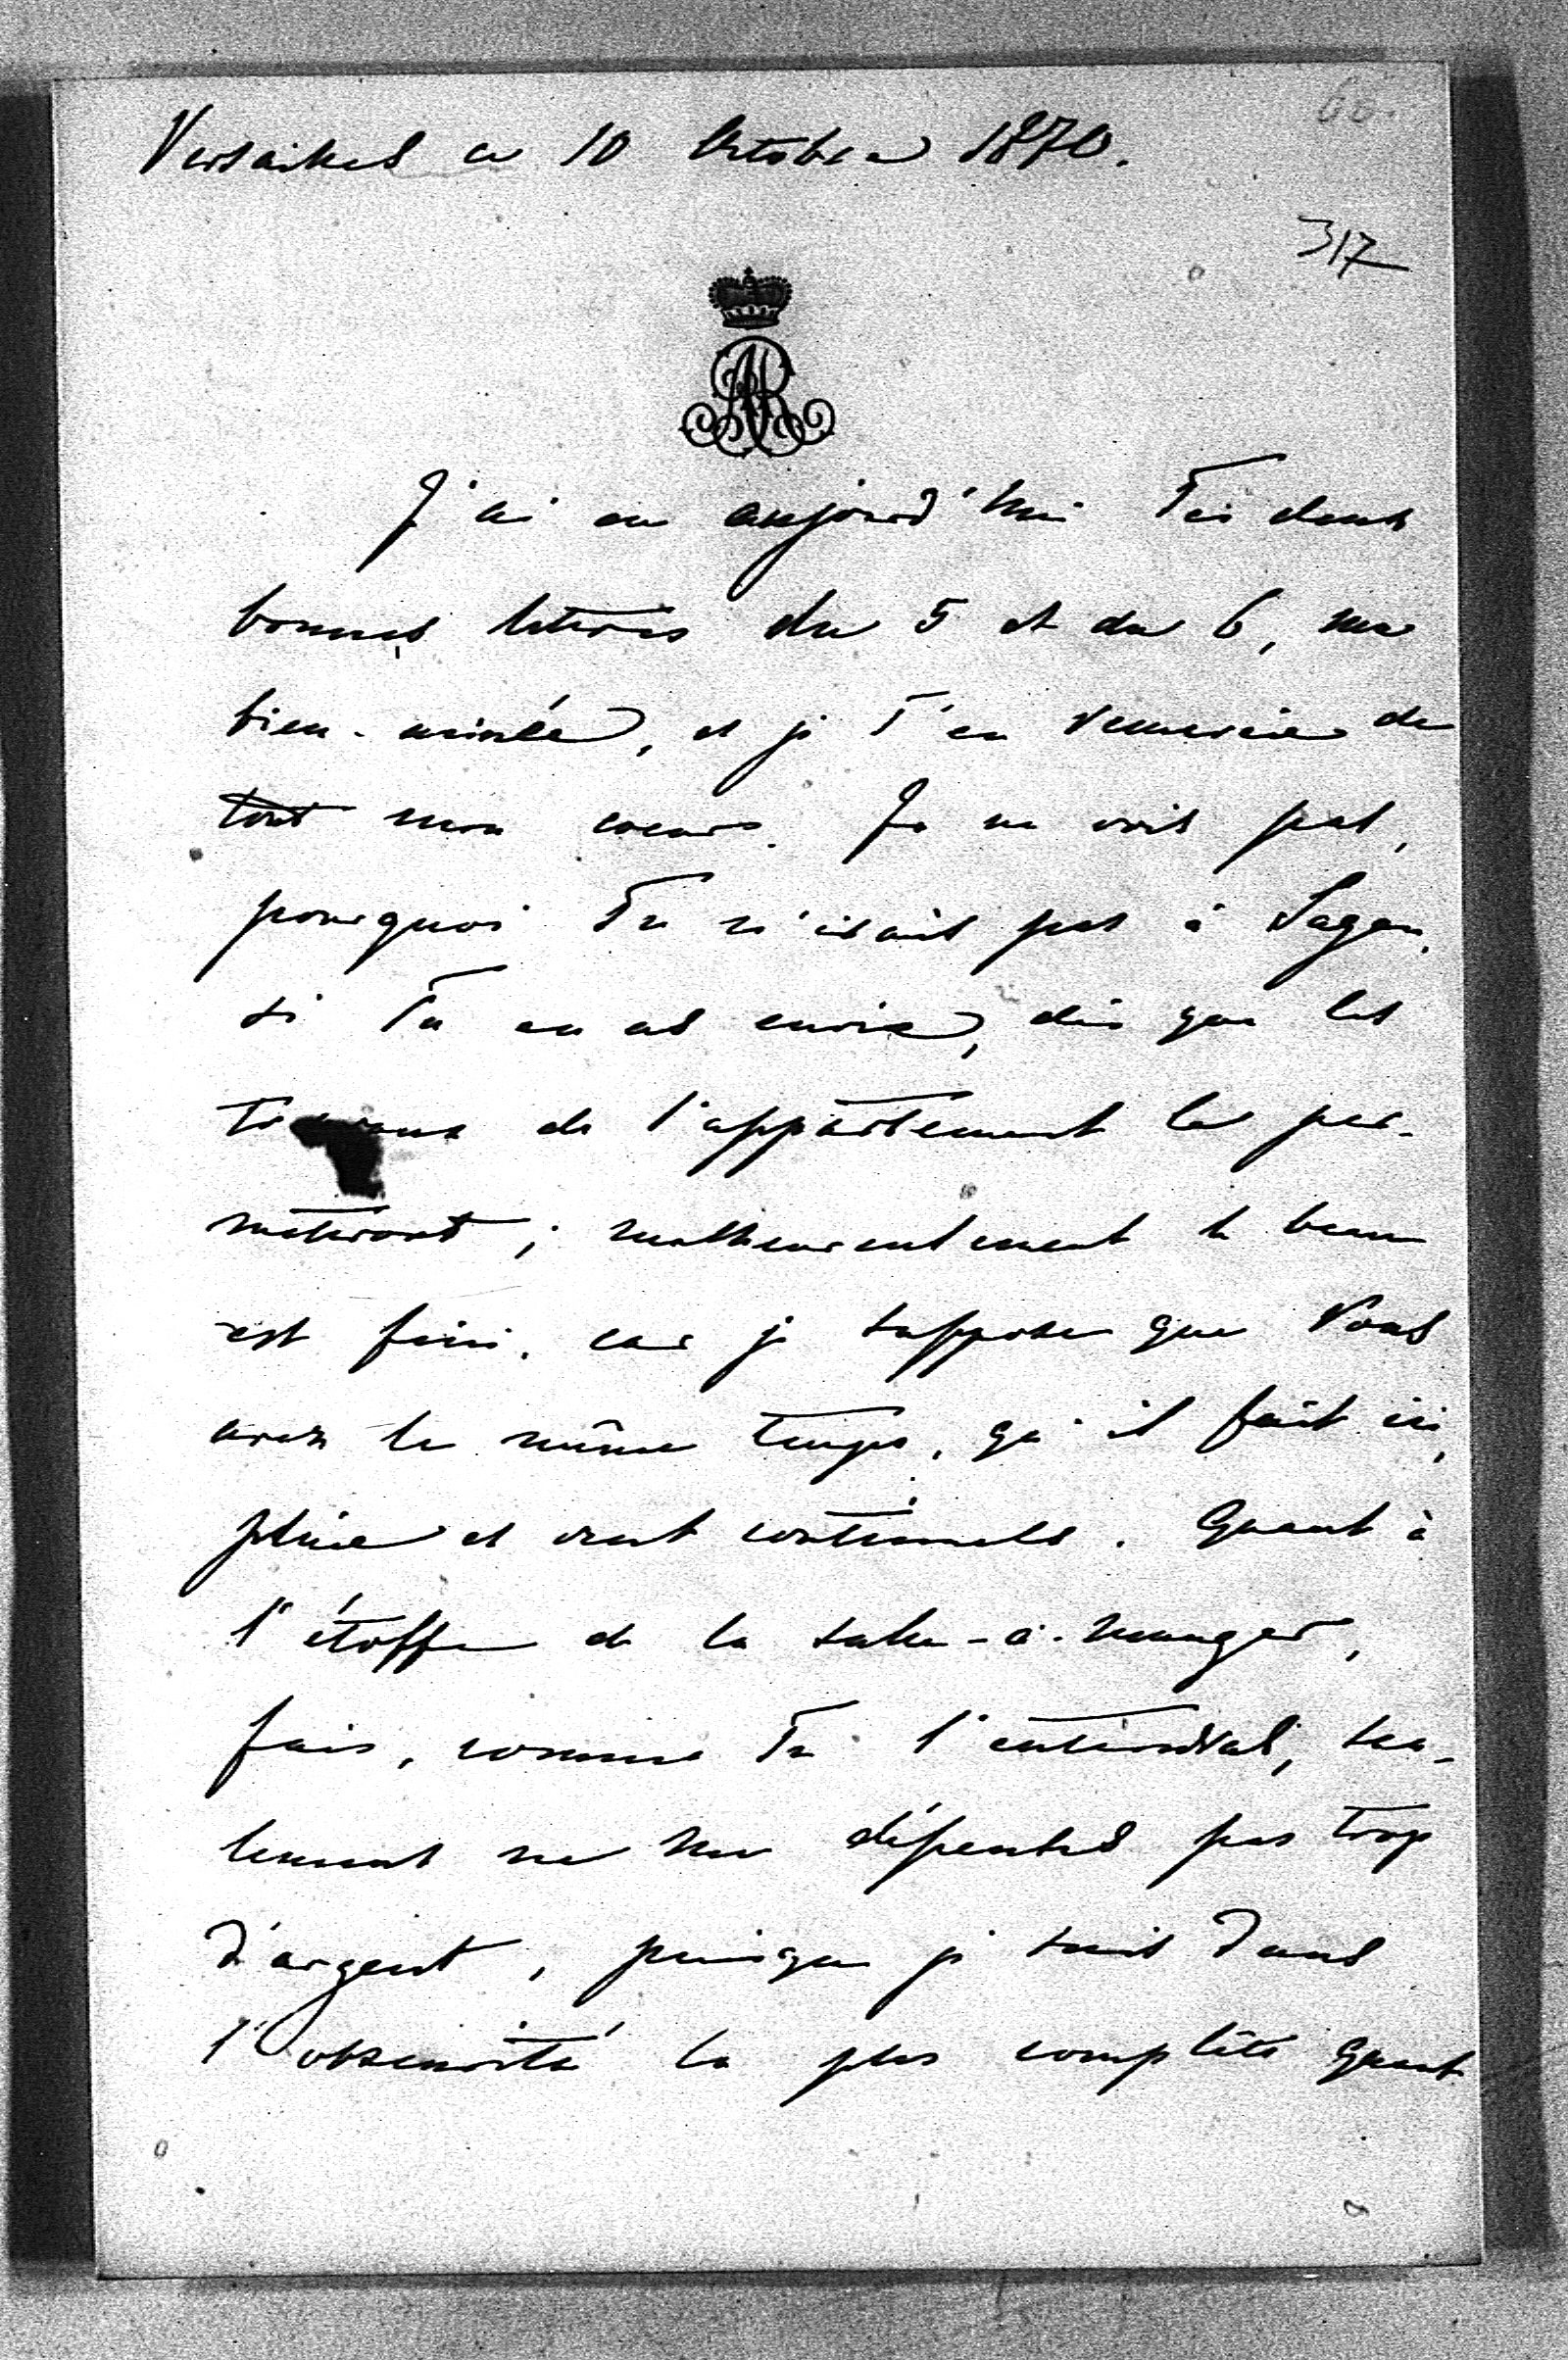 60.
Versailles ce 10 Octobre 1870.
317
AR
J'ai eu aujourd'hui Tes deux
bonnes lettres du 5 et du 6, ma
bien-aimée, et je T'en remercie de
tout mon coeur. Je ne vois pas,
pourquoi Tu n'irais pas à Sagan,
si Tu en as envie, dès que les
travaux de l'appartement le per-
mettront; malheureusement le beau
est fini, car je suppose que Vous
avez le même temps, qu'il fait ici,
pluie et vent continuels. Quant à
l'étoffe de la salle-à-manger,
fais, comme Tu l'entendras, seu-
lement ne me dépenses pas trop
d'argent, puisque je suis dans
l'obscurité la plus complète quant